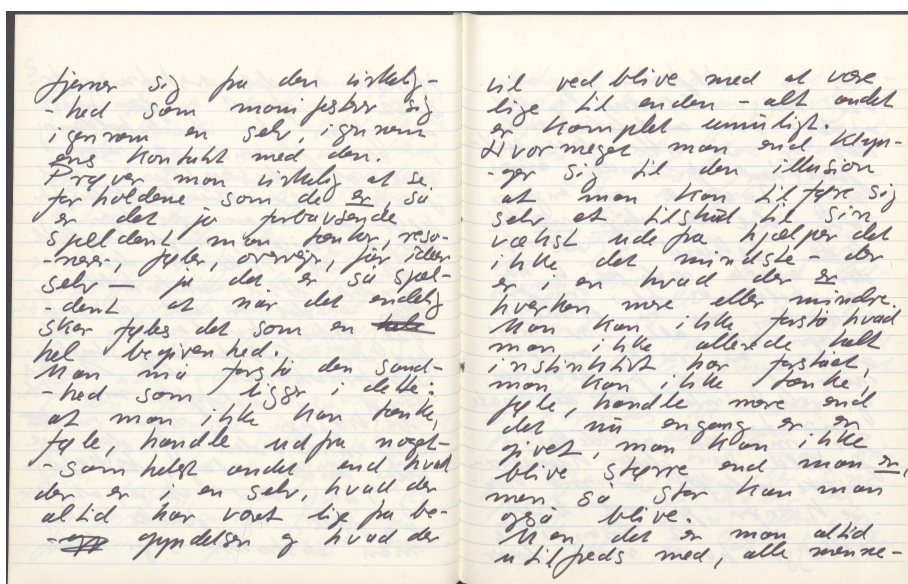 fjerner sig fra den virkelig-
-hed som manifesterer sig
igennem en selv, igennem
ens kontakt med den.
Prøver man virkelig at se
forholdene som de er, så
er det jo forbavsende
sjældent man tænker, reso-
-nerer, føler, overvejer, får ideer
selv – ja det er så sjæl-
-dent at når det endelig
sker føles det som en hele
hel begivenhed.
Man må forstå den sand-
-hed som ligger i dette:
at man ikke kan tænke,
føle, handle ud fra noget-
-som helst andet end hvad
der er i en selv, hvad der
altid har været lige fra be-
-gyndelsen og hvad der
vil vedblive med at være
lige til enden – alt andet
er komplet umuligt.
Hvor meget man end klyn-
-ger sig til den illusion
at man kan tilføre sig
selv et tilskud til sin
vækst udefra hjælper det
ikke det mindste – der
er i en hvad der er
hverken mere eller mindre.
Man kan ikke forstå hvad
man ikke allerede helt
instinktivt har forstået,
man kan ikke tænke,
føle, handle mere end
det nu engang er en
givet, man kan ikke
blive større end man er,
men så stor kan man
også blive.
Men det er man altid
utilfreds med, alle menne-